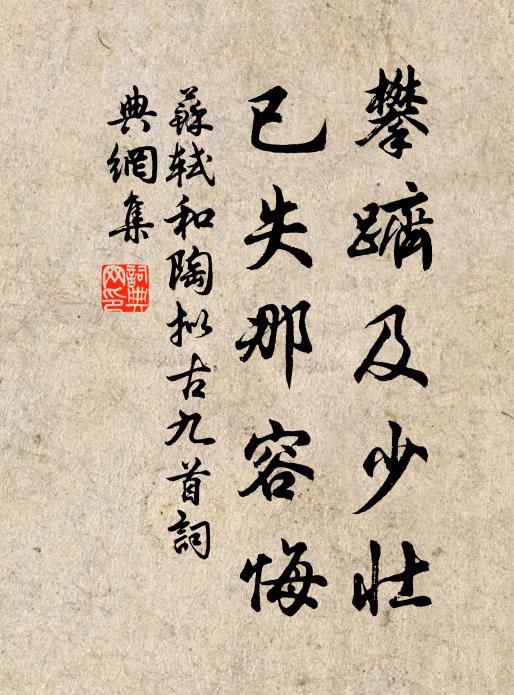 攀躋及少壯
已失那容悔
蘇軾和陶擬古九首詞
典網集
詞典網印